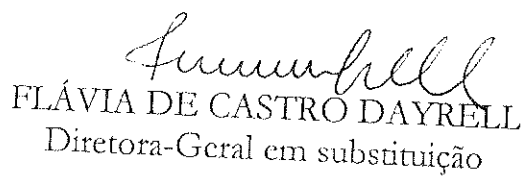 FLÁVIA DE CASTRO DAYRELL
Diretora-Geral em substituição